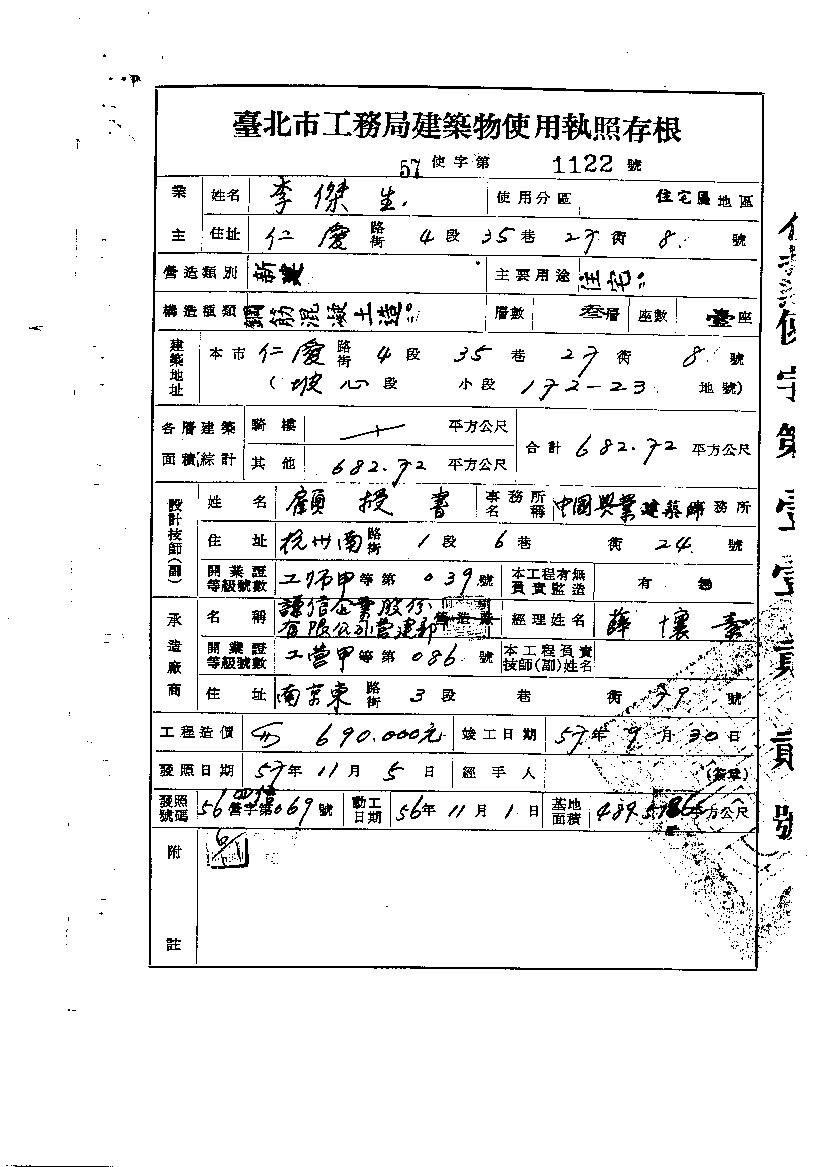 臺北市工務局建築物使用執照存根
57 使字第 1122 號
業主 姓名 李傑生 使用分區 住宅區 地區
住址 仁愛 路街 4 段 35 巷 27 衖 8 號
營造類別 新建 主要用途 住宅
構造種類 鋼筋混凝土造 層數 叁層 座數 壹座
建築地址 本市 仁愛 路街 4 段 35 巷 27 衖 8 號
(坡心段 小段 172-23 地號)
各層建築面積綜計 騎樓 平方公尺 合計 682.72 平方公尺
其他 682.72 平方公尺
設計技師(副) 姓名 顧授書 事務所名稱 中國興業建築師務所
住址 杭州南 路街 1 段 6 巷 衖 24 號
開業證等級號數 工師甲等第 039 號 本工程有無負責監造 有
承造廠商 名稱 謙信企業股份有限公司營建部 經理姓名 薛懷
開業證等級號數 工營甲等第 086 號 本工程負責技師(副)姓名
住址 南京東 路街 3 段 巷 衖 79 號
工程造價 690.000元 竣工日期 57年9月30日
發照日期 57年11月5日 經手人 (簽章)
發照號碼 56 營字第069號 動工日期 56年11月1日 基地面積 489. 平方公尺
附註
使字第壹壹貳貳號